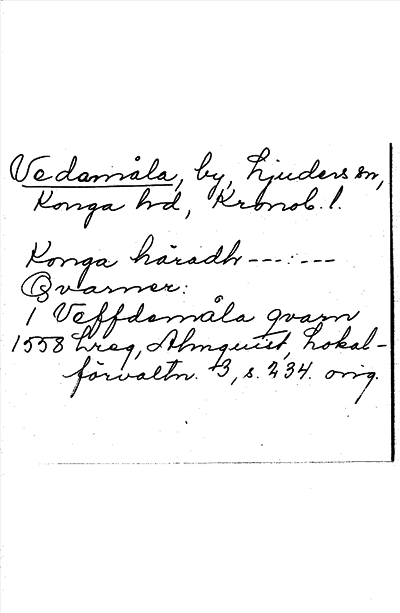 Vedamåla, by, Ljuders sn,
Konga hd, Kronob. l.
Konga häradh ---:---
Qvarner:
1 Veffdamåla qvarn
1558 Lreg, Almquist, Lokal-
förvaltn. 3, s. 234. orig.